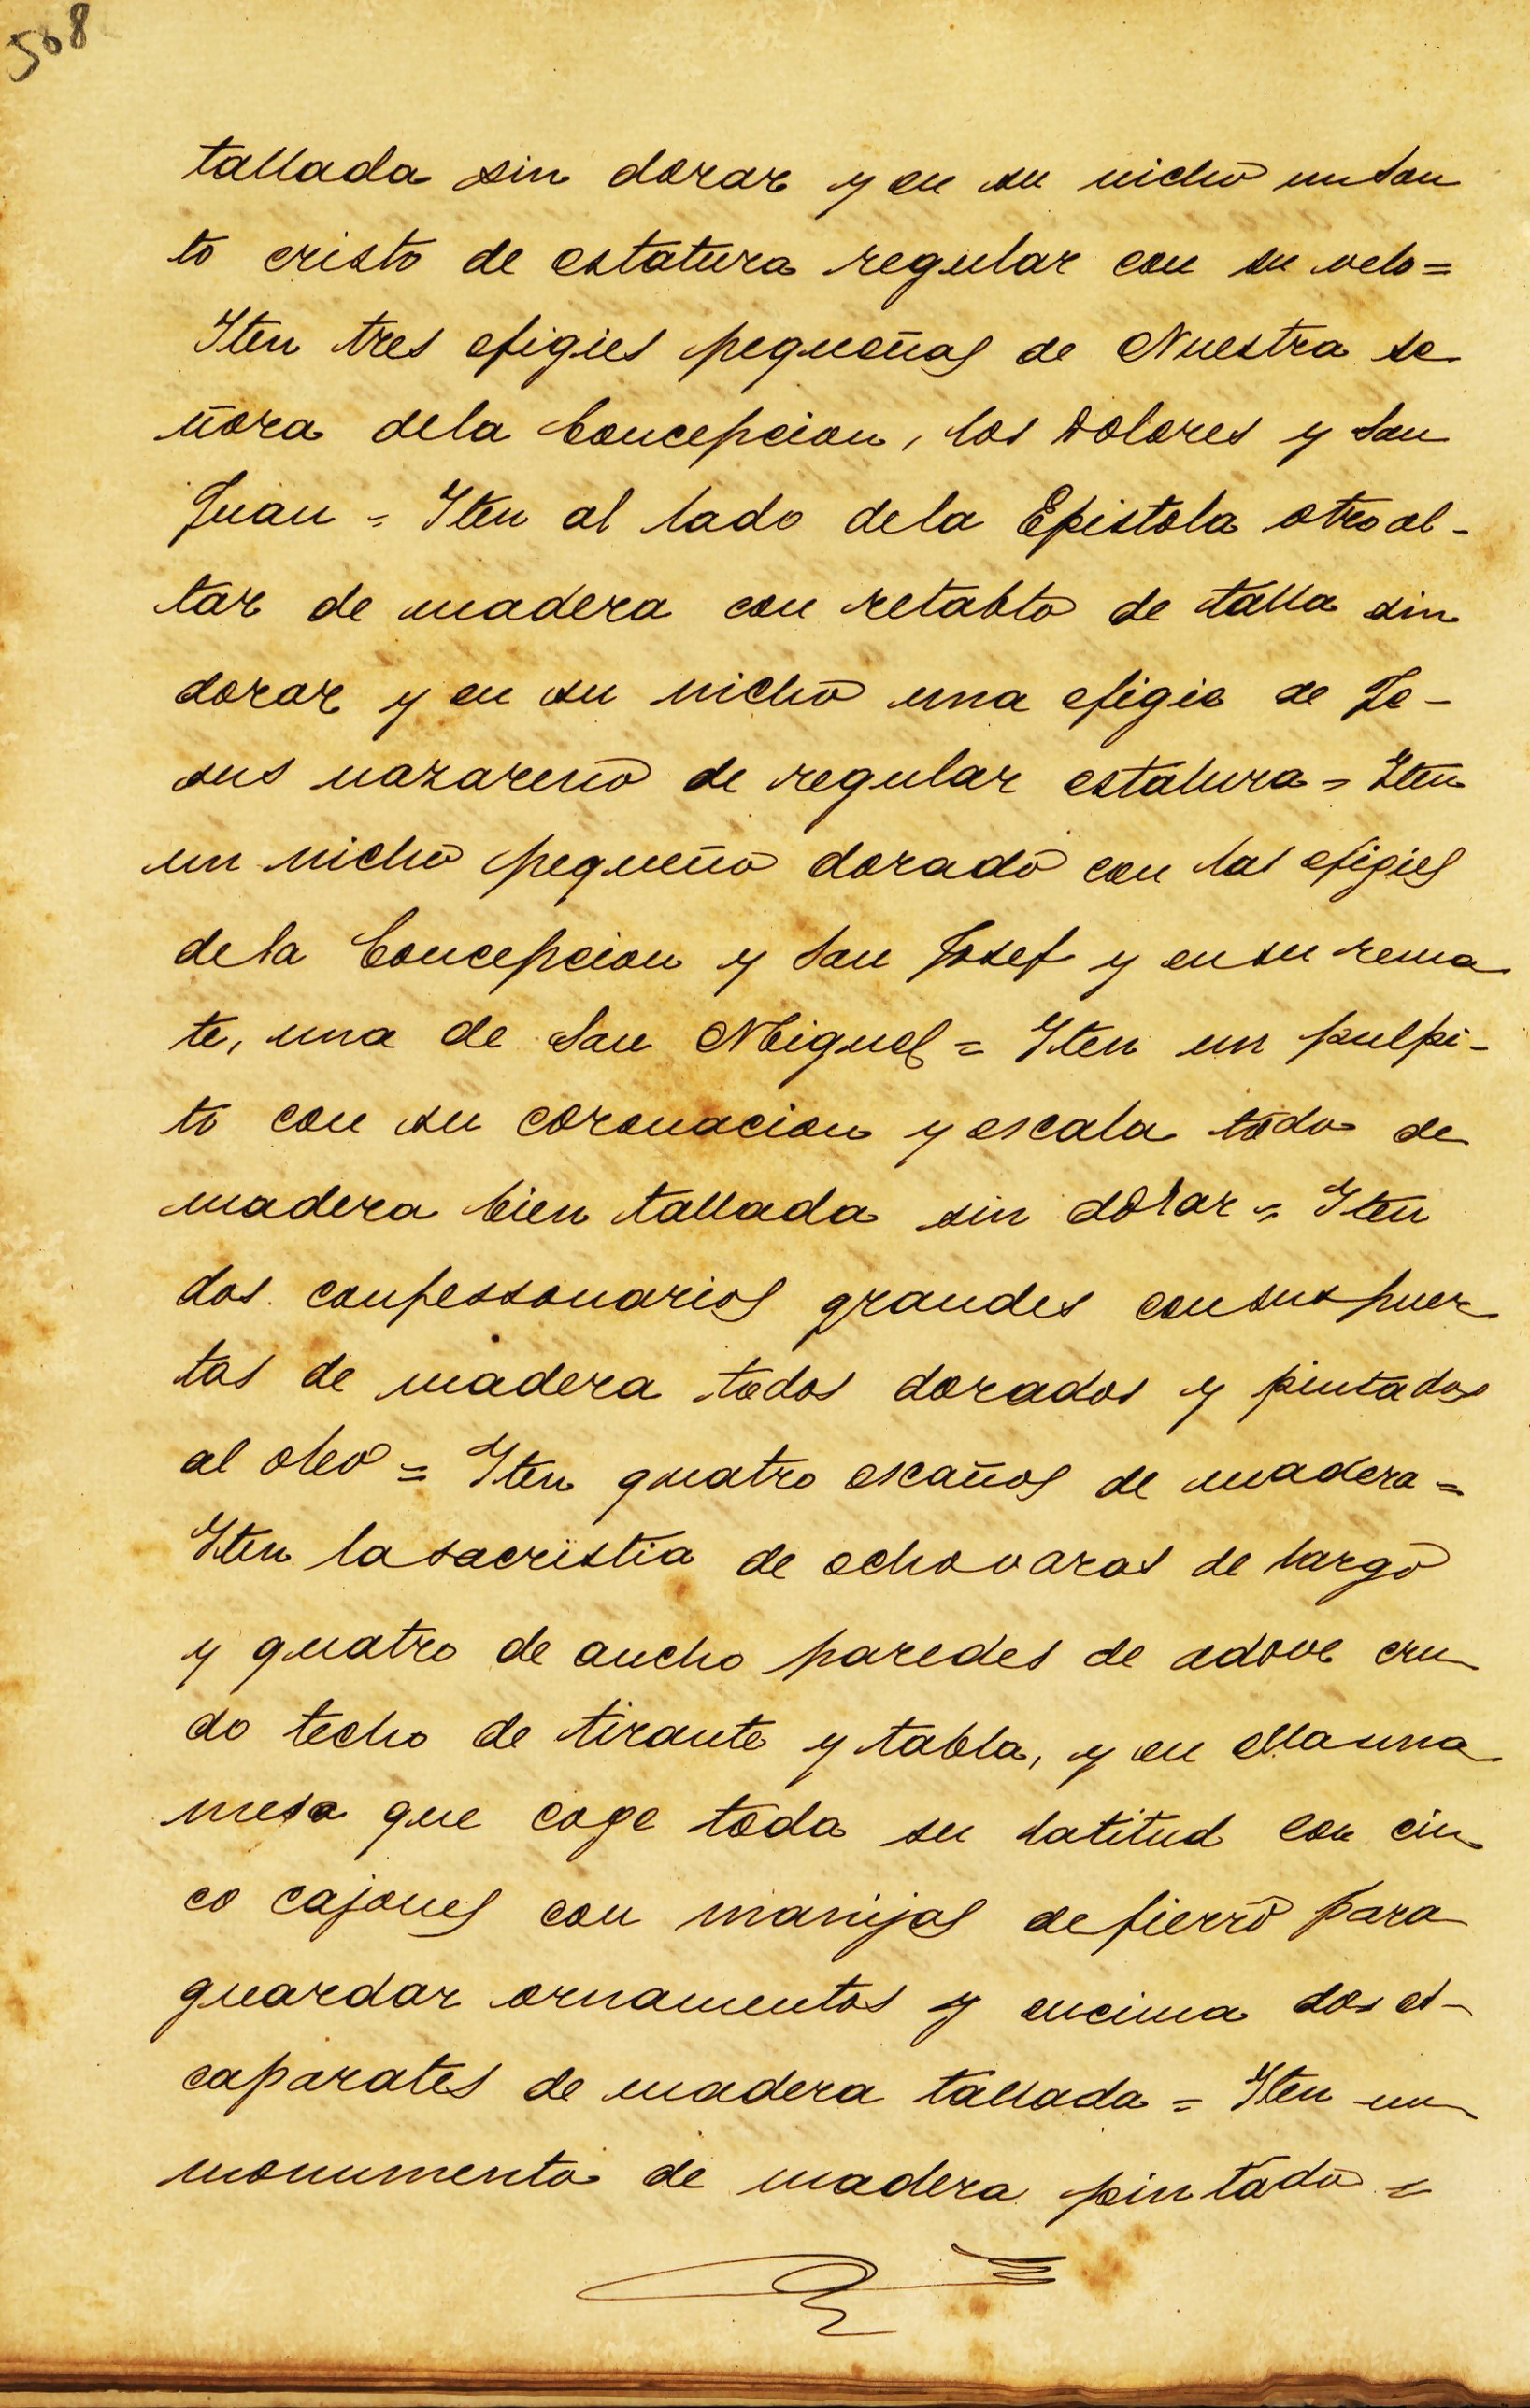 508
tallada sin dorar y en su nicho un San
to cristo de estatura regular con su velo=
Iten tres efigies pequeñas de Nuestra se
ñora dela Concepcion, los Dolores y San
Juan = Iten al lado dela Epistola otro al-
tar de madera con retablo de talla sin
dorar y en su nicho una efigie de Je-
sus nazareno de regular estatura = Iten
un nicho pequeño dorado con las efigies
dela Concepcion y San Josef y en su rema
te, una de San Miguel = Iten un pulpi-
to con su coronacion y escala todo de
madera bien tallada sin dorar = Iten
dos confessonarios grandes con sus puer
tas de madera todos dorados y pintados
al oleo = Iten quatro escaños de madera =
Iten la sacristia de ocho varas de largo
y quatro de ancho paredes de adove cru
do techo de tirante y tabla, y en ella una
mesa que coge toda su latitud con cin
co cajones con manijas de fierro para
guardar ornamentos y encima dos es-
caparates de madera tallada = Iten un
monumento de madera pintado =